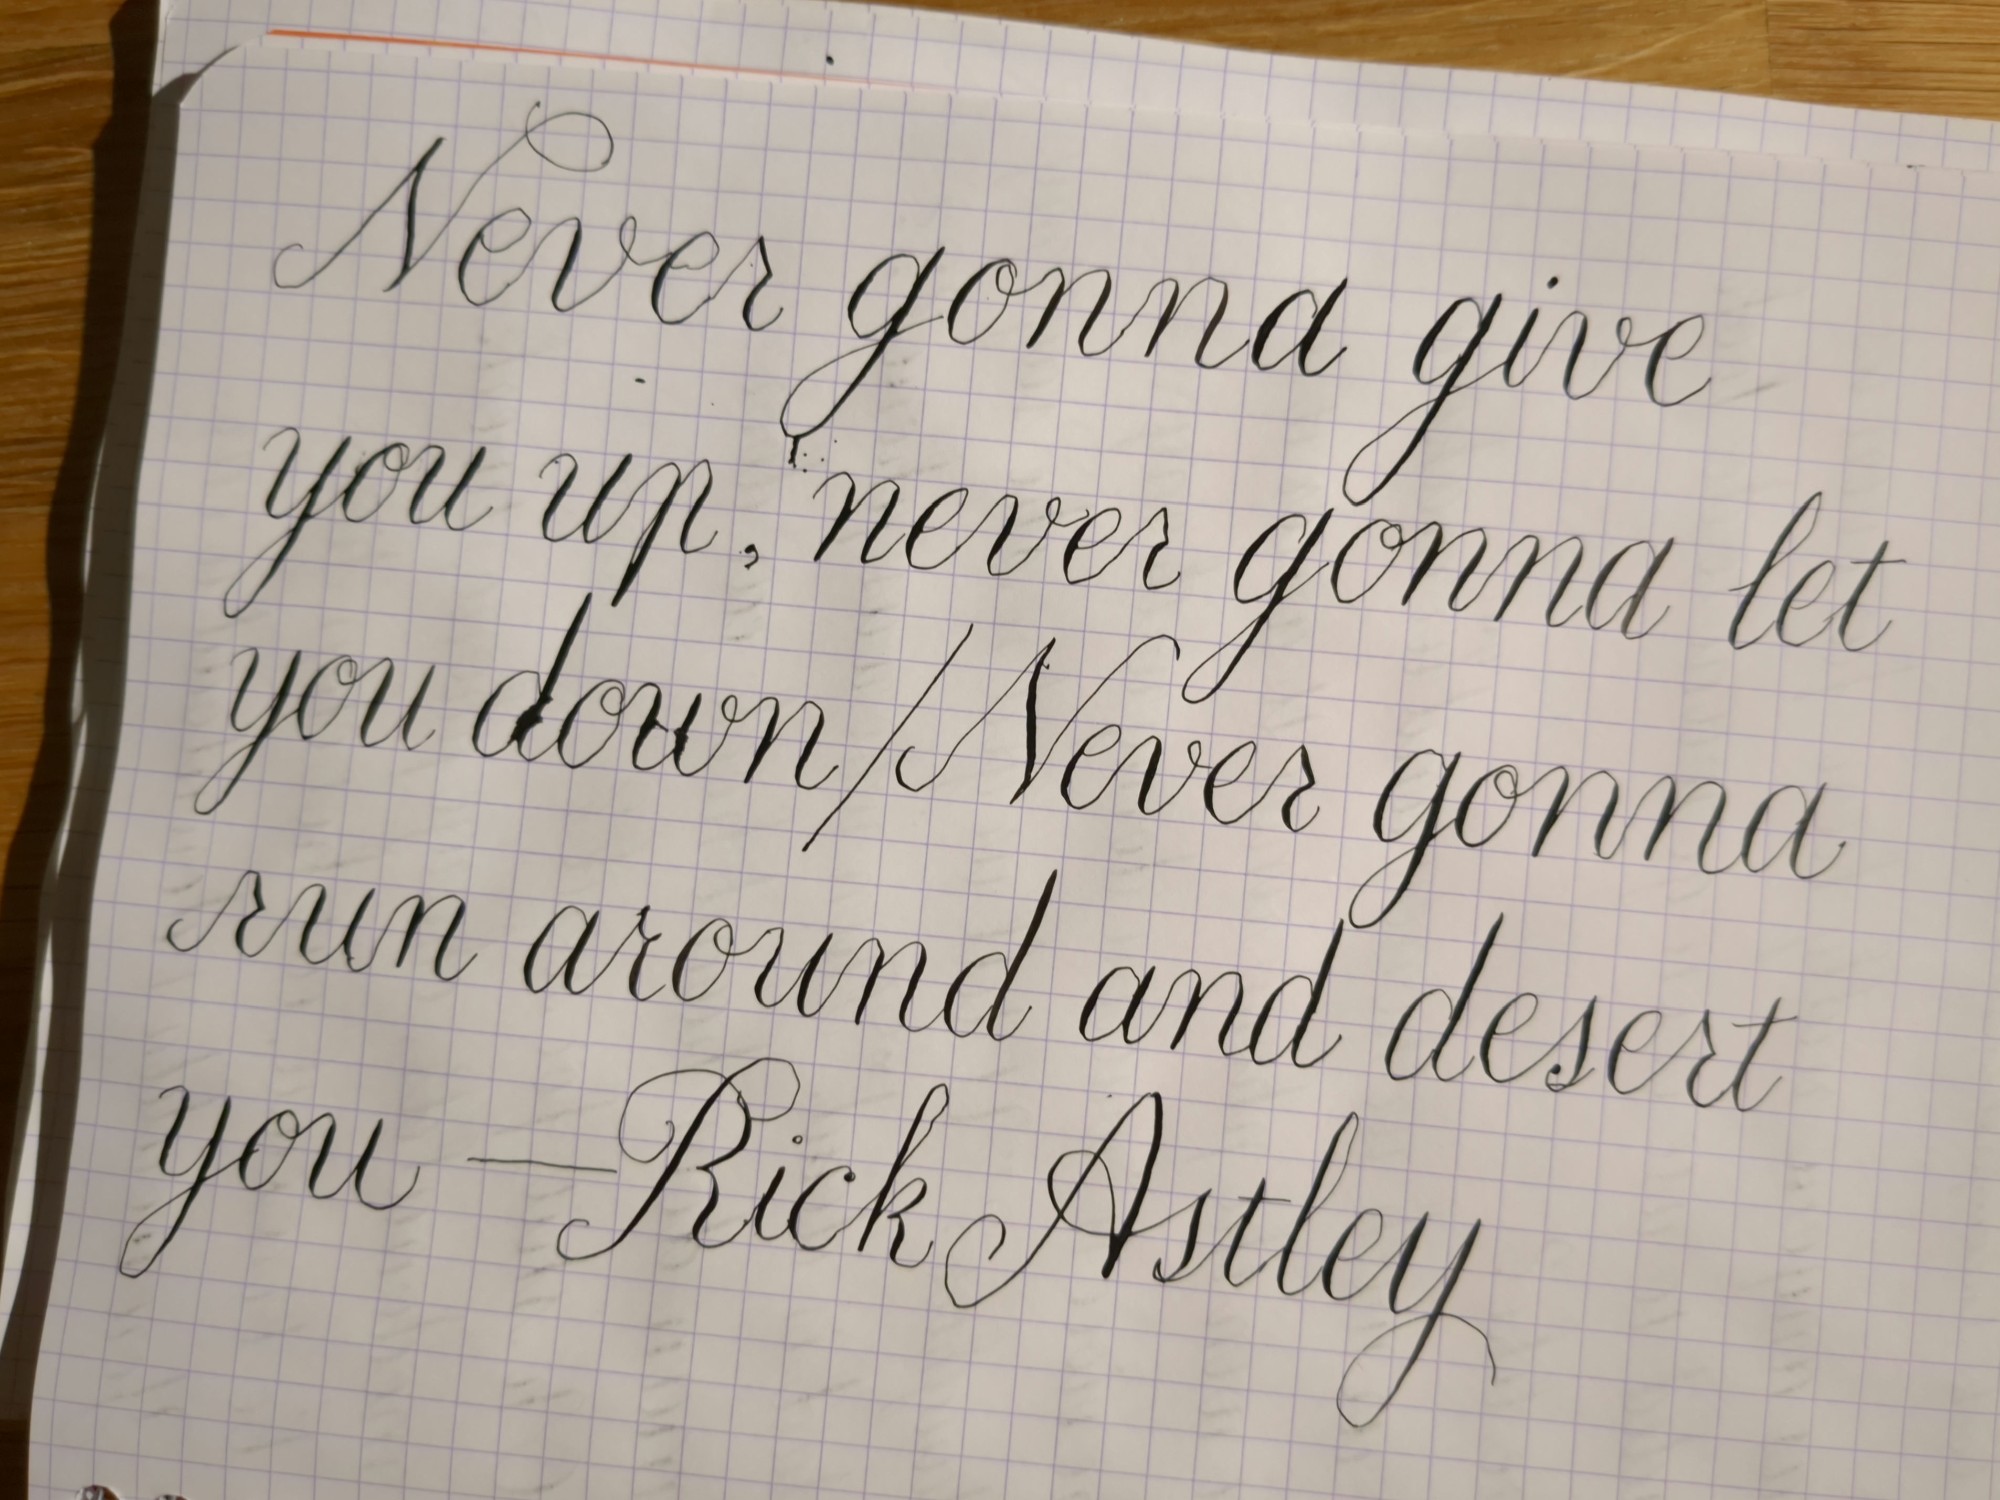 Never gonna give
you up, never gonna let
you down/Never gonna
run around and desert
you —Rick Astley